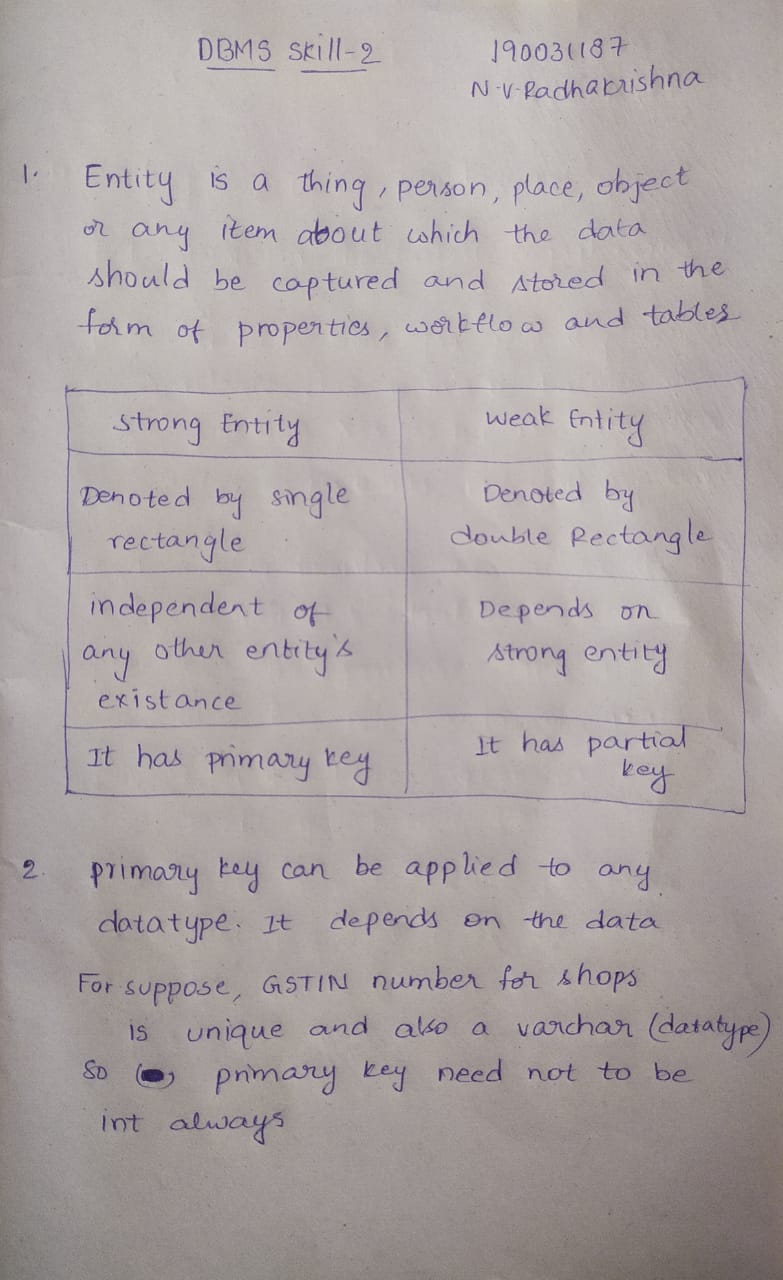 DBMS Skill-2 190031187
N.V.Radhakrishna
1. Entity is a thing, person, place, object
or any item about which the data
should be captured and stored in the
form of properties, workflow and tables
Strong Entity Weak Entity
Denoted by single Denoted by
rectangle double Rectangle
independent of Depends on
any other entity's strong entity
existance
It has primary key It has partial
key
2. primary key can be applied to any
datatype. It depends on the data
For suppose, GSTIN number for shops
is unique and also a varchar (datatype)
So primary key need not to be
int always